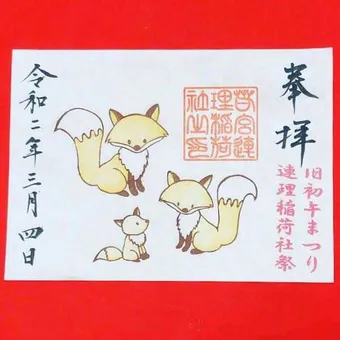 奉拝
旧初午まつり
連理稲荷社祭
若宮連
理稲荷
社之印
令和二年三月四日